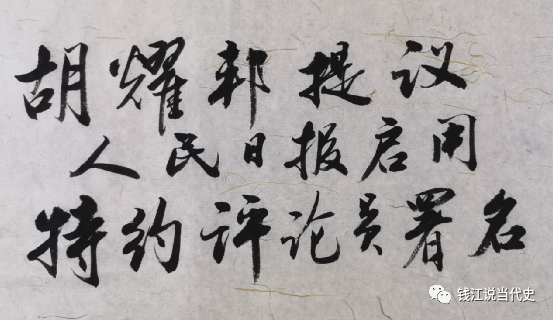 胡耀邦提议
人民日报启用
特约评论员署名
钱江说当代史